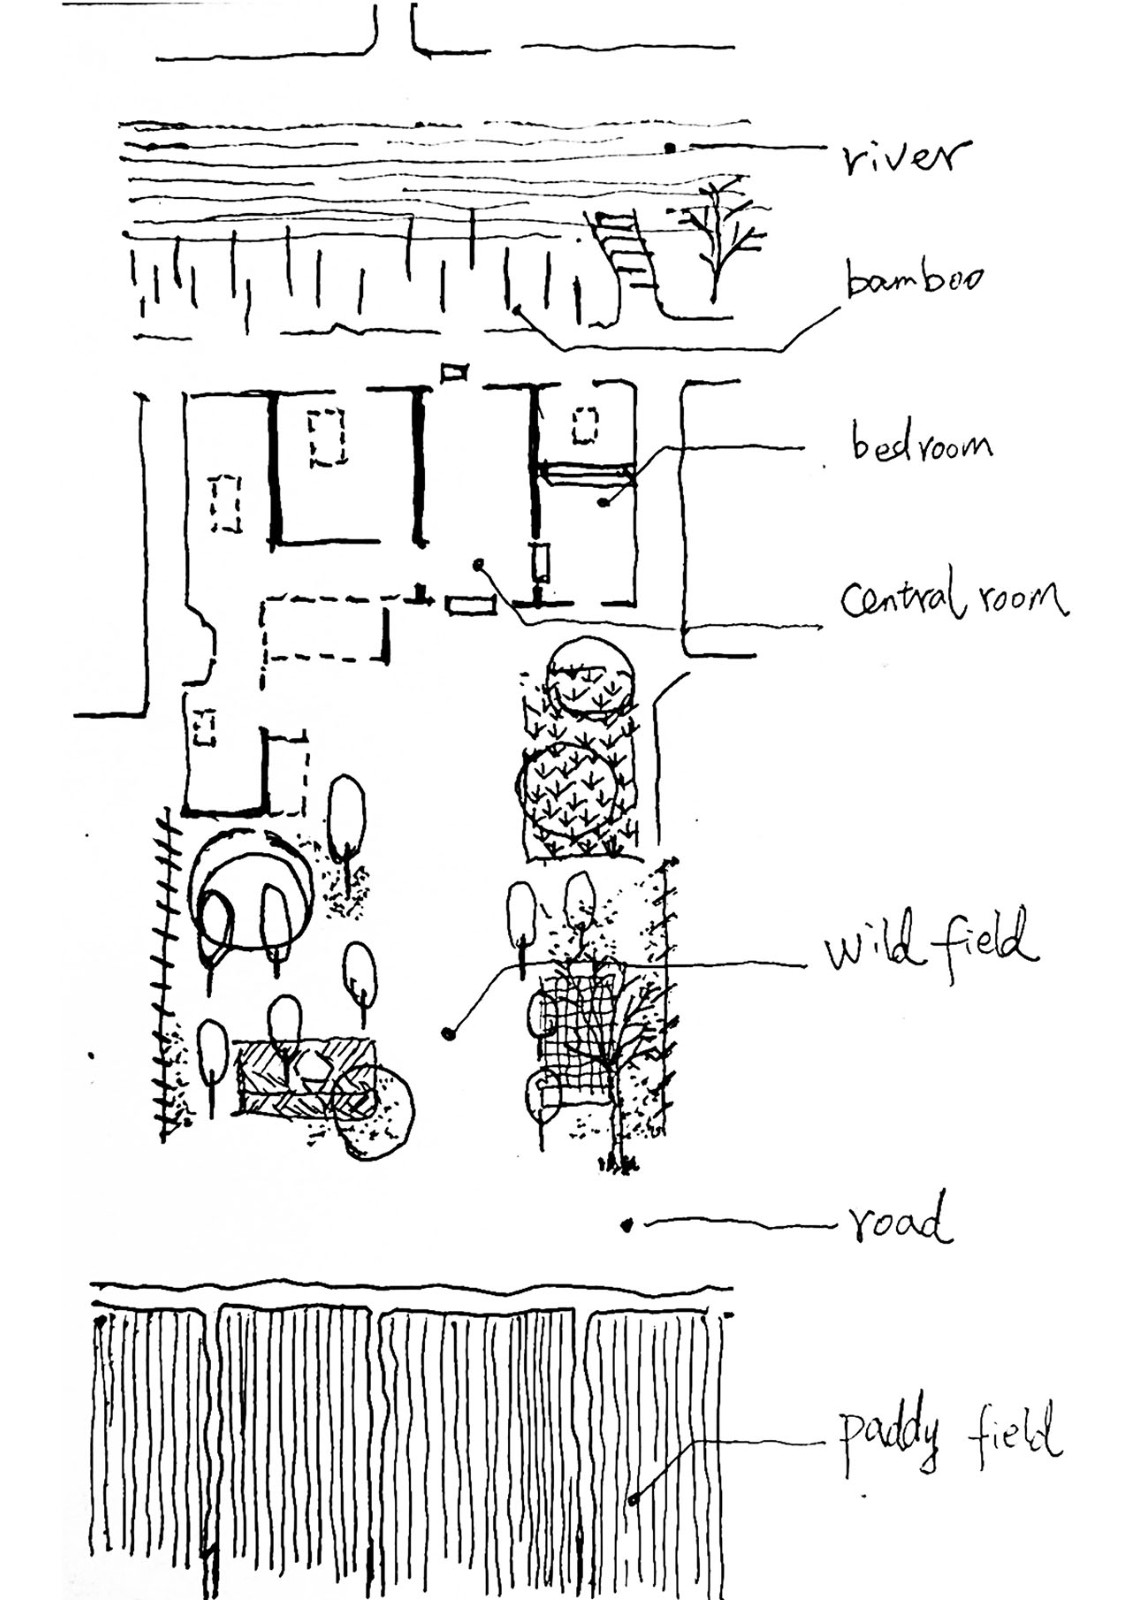 river
bamboo
bedroom
central room
wild field
road
paddy field